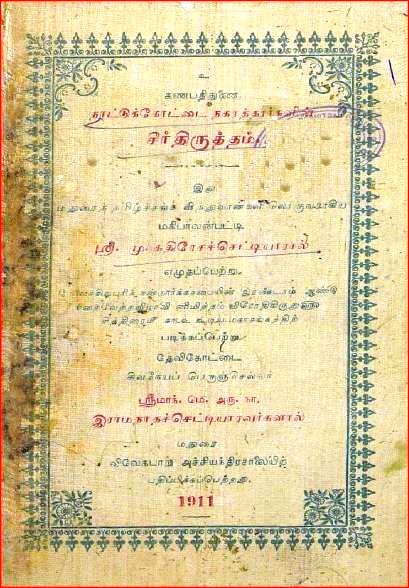 உ
கணபதிதுணை.
நாட்டுக்கோட்டை நகரத்தார்களின்
சீர்திருத்தம்.
இது
மதுரைத் தமிழ்ச்சங்க வித்துவான்களி லொருவராகிய
மகிபாலன்பட்டி
ஸ்ரீ. மு. கதிரேசச்செட்டியாரால்
எழுதப்பெற்று,
சன்மார்க்கசபையின் இரண்டாம் ஆண்டு
படிக்கப்பெற்று
தேவிகோட்டை
சிவநேயப் பெருஞ்செல்வர்
ஸ்ரீமாந். மெ. அரு. நா.
இராமநாதச்செட்டியாரவர்களால்
மதுரை
விவேகபாநு அச்சியந்திரசாலையிற்
பதிப்பிக்கப்பெற்றது.
1911